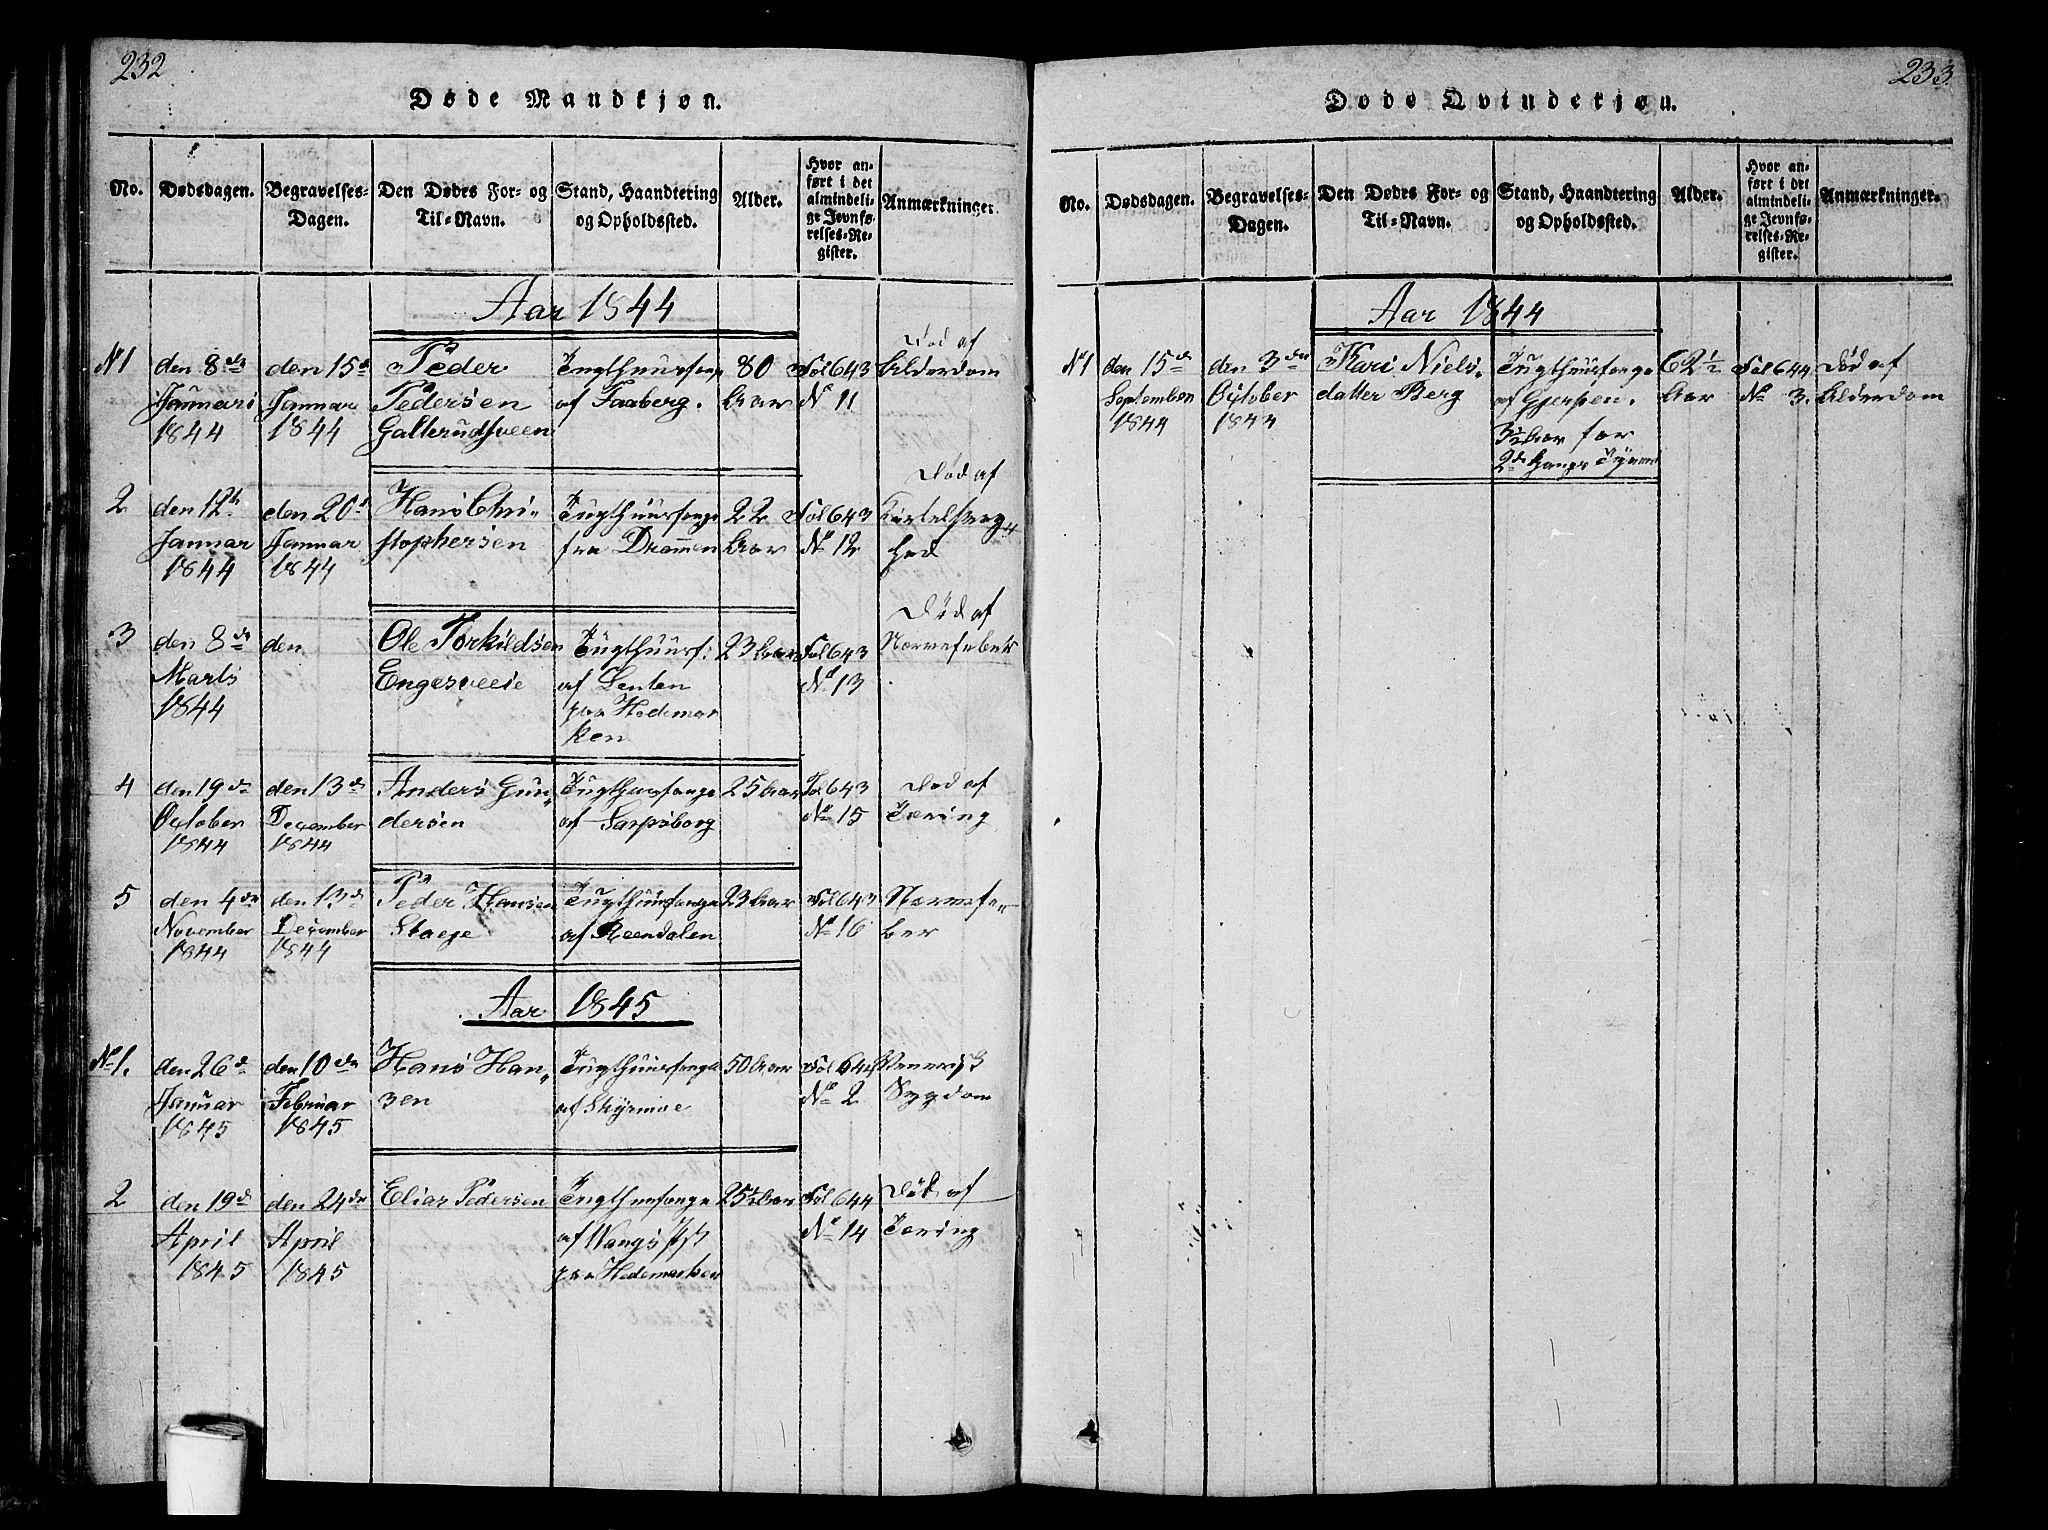 232
Døde Mandkjøn.
No.
Dødsdagen.
Begravelses-
Dagen.
Den Dødes For- og
Til-Navn.
Stand, Haandtering
og Opholdssted.
Alder.
Hvor an-
ført i det
almindeli-
ge Jevnfø-
relses-Re-
gister.
Anmærkninger.
Aar 1844
No 1
den 8de
Januari
1844
den 15d
Januar
1844
Peder
Pedersen
Galterudsveen
Tugthuusfange
af Faaberg.
80
Aar
Fol 643
No 11
Død af
Alderdom
2
den 12te
Januar
1844
den 20d
Januar
1844
Hans Chri-
stophersen
Tugthuusfange
fra Drammen
22
Aar
Fol 643
No 12
Død af
hed
3
den 8de
Marts
1844
den
Ole Torkildsen
Engesveeie
Tugthuusf:
af Leuten
paa Hedemar
ken
23 Aar
Fol 643
No 13
Død af
Nervefeber
4
den 19de
October
1844
den 13de
December
1844
Anders Gun„
dersen
Tugthusfange
af Sarpsborg
25 Aar
Fol 643
No 15
Død af
Tæring
5
den 4de
November
1844
den 13d
December
1844
Peder Hansen
Staege
Tugthuusfange
af Reendalen
23 Aar
Fol 643
No 16
Nervefe-
ber
Aar 1845
No 1.
den 26d
Januar
1845
den 10de
Februar
1845
Hans Han„
sen
Tugthuusfange
af
50 Aar
Fol 644
No 2
Venerisk
Sygdom
2
den 19d
April
1845
den 24de
April
1845
Elias Pedersen
Tugthusfange
af Vangs Pgt
paa Hedemarken
25½ Aar
Fol 644
No 14
Død af
Tæring
233
Døde Qvindekjøn.
No.
Dødsdagen.
Begravelses-
Dagen.
Den Dødes For- og
Til-Navn.
Stand, Haandtering
og Opholdssted.
Alder.
Hvor an-
ført i det
almindeli-
ge Jevnfø-
relses-Re-
gister.
Anmærkninger.
Aar 1844
No 1
den 15d
September
1844
den 3die
October
1844
Kari Niels-
datter Berg
Tugthuusfange
af Gjerpen.
3½ Aar for
2de Gangs Tyverie
62½
Aar
Fol 644
No 3.
Død af
Alderdom